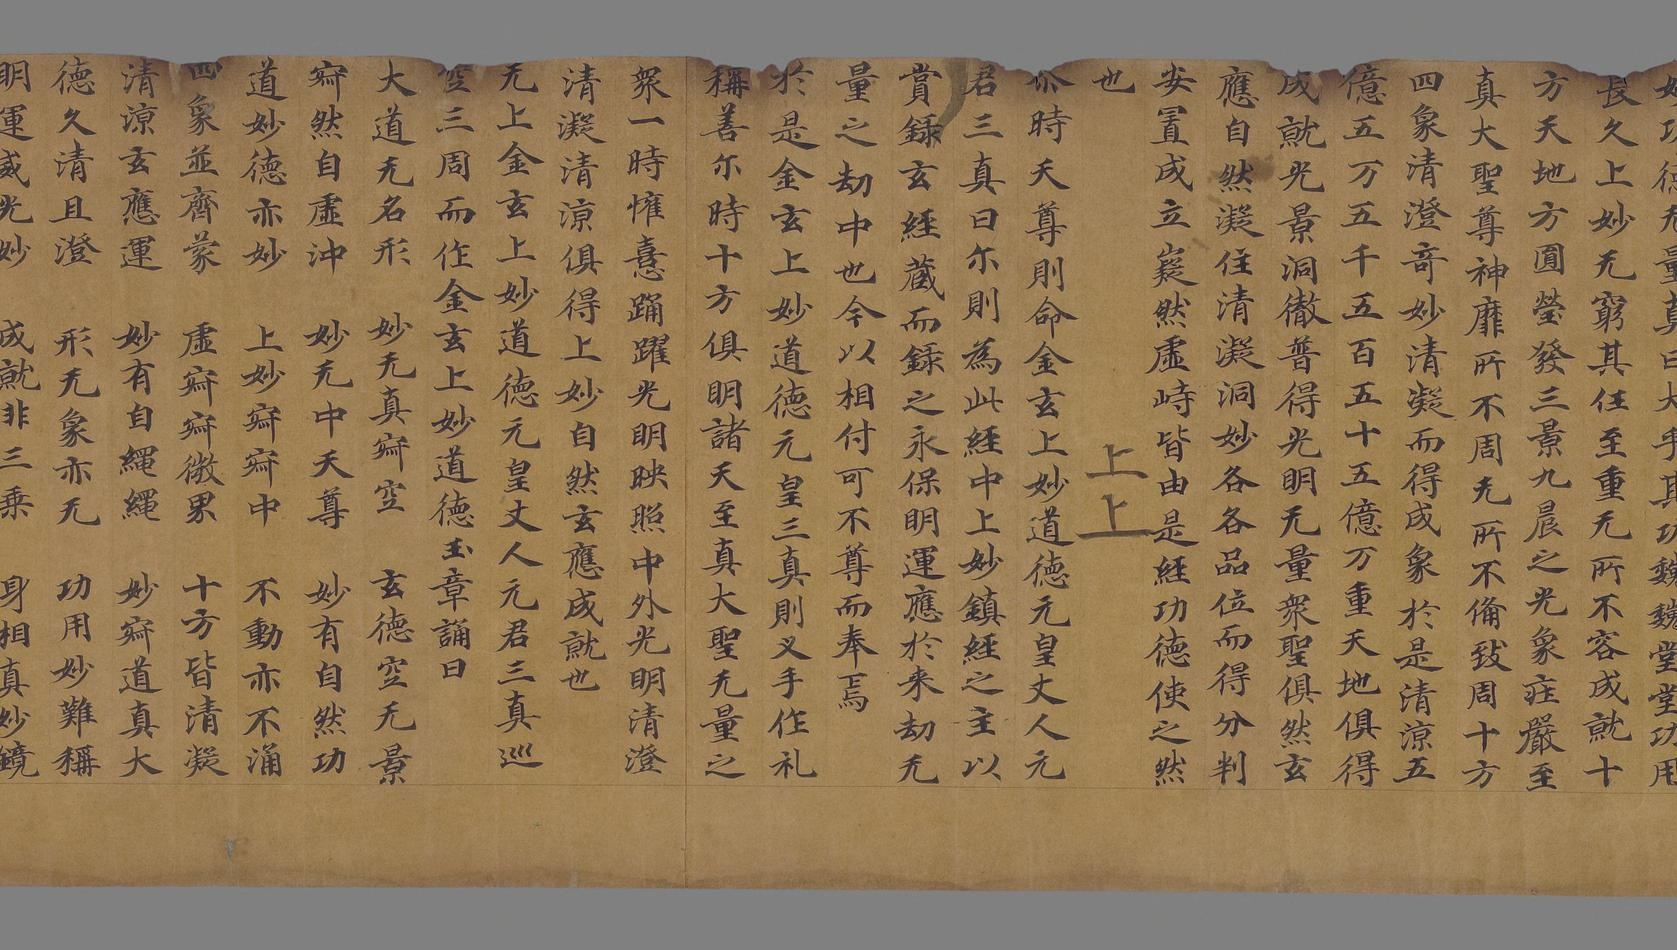 妙功德无量真曰大乎其功巍巍堂堂功用
長久上妙无窮其任至重无所不容成就十
方天地方圓瑩發三景九晨之光象莊嚴至
真大聖尊神靡所不周无所不俻致周十方
四象清澄竒妙清凝而得成象於是清凉五
億五万五千五百五十五億万重天地俱得
成就光景洞徹普得光明无量衆聖俱然玄
應自然凝住清凝洞妙各各品位而得分判
安置成立嶷然虛峙皆由是經功德使之然
也
上上
尒時天尊則命金玄上妙道德元皇丈人元
君三真曰尒則為此經中上妙鎮經之主以
賞録玄經蔵而録之永保明運應於来劫无
量之劫中也今以相付可不尊而奉焉
於是金玄上妙道德元皇三真則叉手作礼
稱善尒時十方俱明諸天至真大聖无量之
衆一時懽憙踊躍光明映照中外光明清澄
清凝清凉俱得上妙自然玄應成就也
无上金玄上妙道德元皇丈人元君三真巡
空三周而作金玄上妙道德玉章誦曰
大道无名形 妙无真寂空 玄德空无景
寂然自虛沖 妙无中天尊 妙有自然功
道妙德亦妙 上妙寂寂中 不動亦不涌
四象並齊蒙 虛寂寂微果 十方皆清凝
清凉玄應運 妙有自繩繩 妙寂道真大
德久清且澄 形无象亦无 功用妙難稱
明運威光妙 成就非三乗 身相真妙鏡